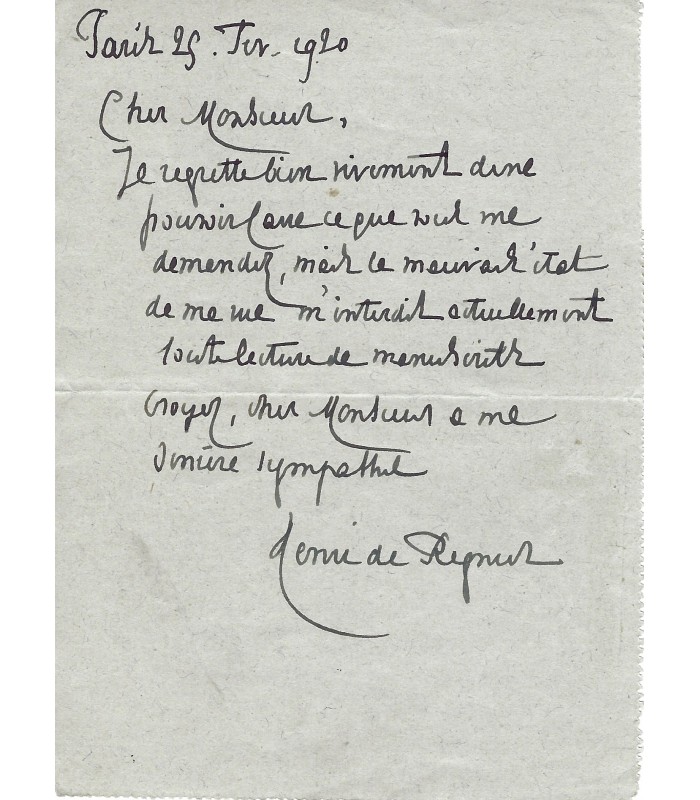 Paris 25. Fev. 1920
Cher Monsieur,
Je regrette bien vivement de ne
pouvoir faire ce que vous me
demandez, mais le mauvais état
de ma vue m'interdit actuellement
toute lecture de manuscrits
Croyez, cher Monsieur a ma
sincère sympathie
Henri de Regnier